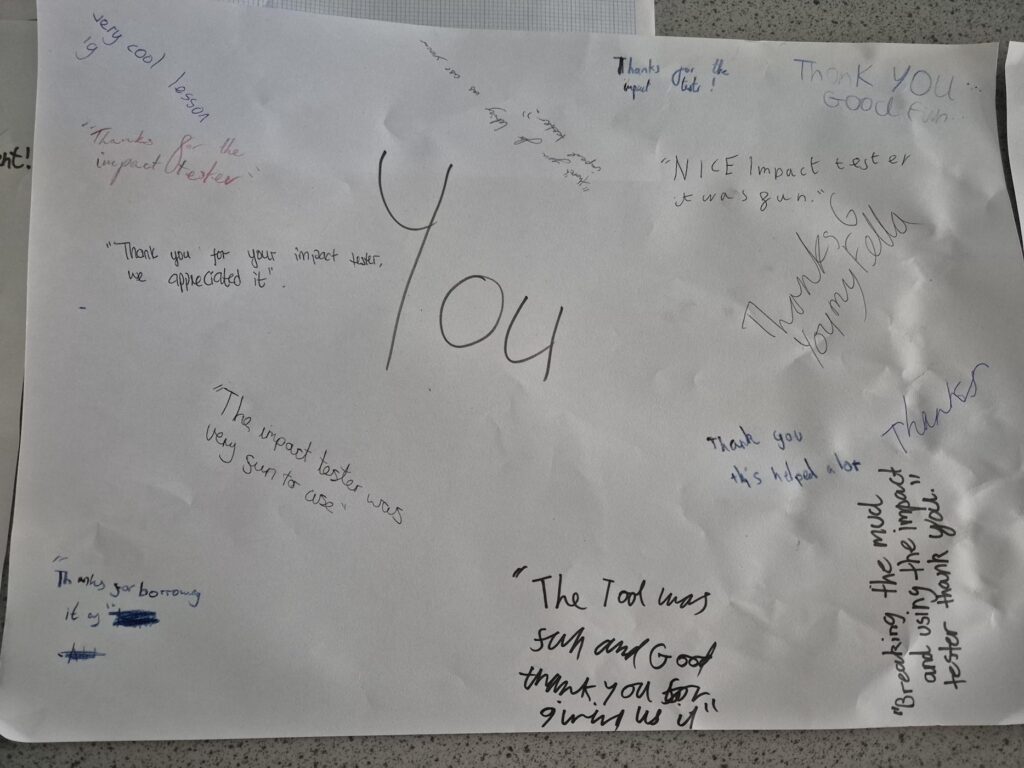 very cool lesson
ig
"Thanks for the
impact tester"
Thanks for the
impact teste!
Thank YOU...
GOOD fun...
"NICE Impact tester
it was fun."
ent!
You
"Thank you for your impact tester,
we appreciated it".
Thanks G
You my Fella
Thanks
"The impact tester was
very fun to use"
Thank you
this helped alot
"Breaking the mud
and using the impact
tester thank you."
"
Thanks for borrowing
it of
"The Tool was
fun and Good
thank you for
giving us it"